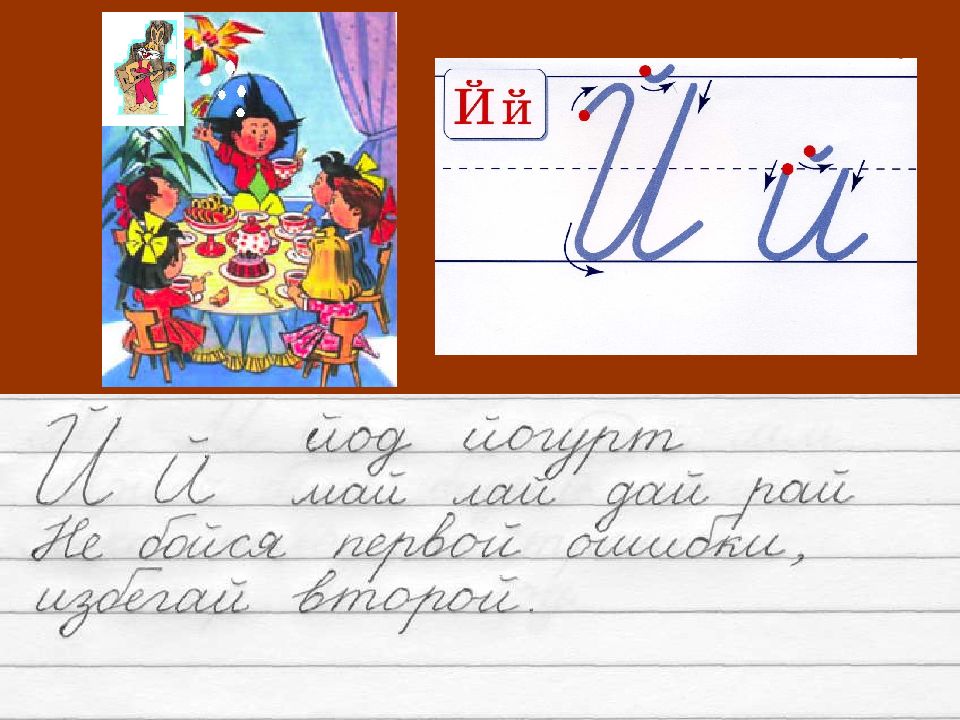 Й й
Й й
Й й йод йогурт
май лай дай рай
Не бойся первой ошибки,
избегай второй.